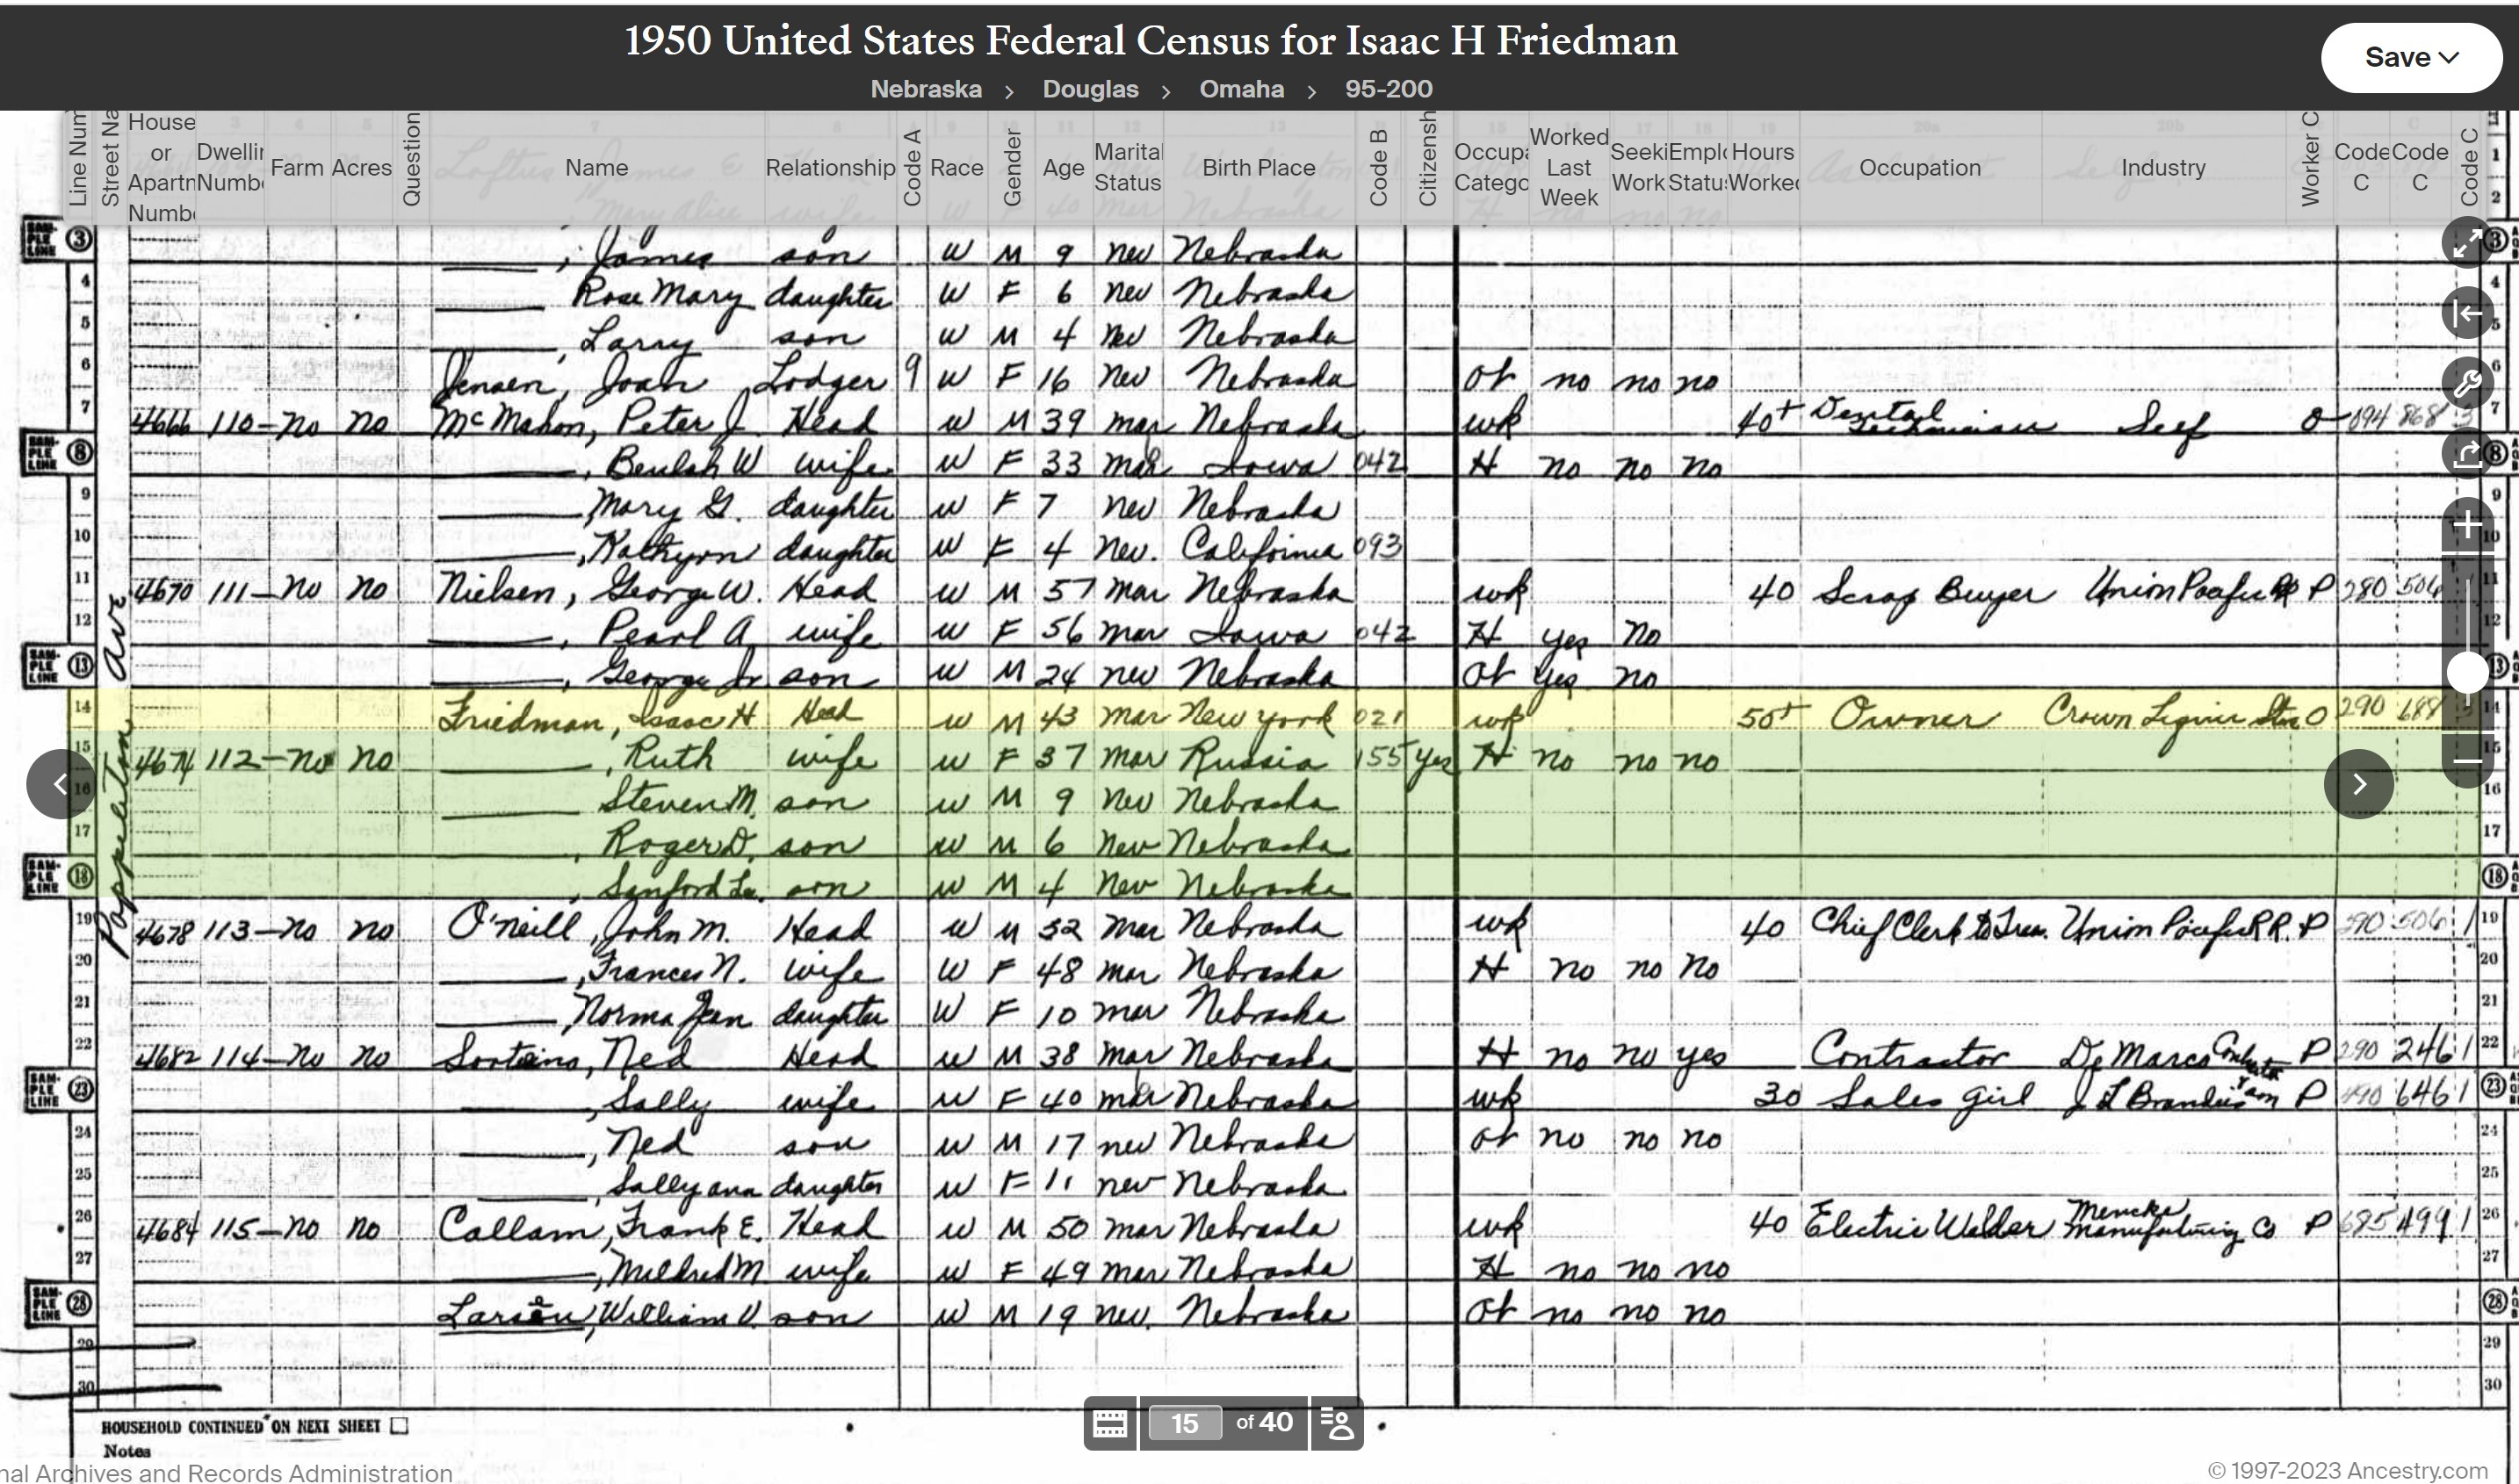 1950 United States Federal Census for Isaac H Friedman
Save
Nebraska > Douglas > Omaha > 95-200
Line Num Street Na House or Apartm Numbe Dwellin Numbe Farm Acres Question Name Relationship Code A Race Gender Age Marital Status Birth Place Code B Citizensh Occupa Catego Worked Last Week Seeki Work Emplo Status Hours Worked Occupation Industry Worker C Code C Code C Code C
Loftus James E
2 Mary Alice wife W F 40 mar Nebraska H no no no 2
SAM-PLE LINE 3 ———, James son W M 9 nev Nebraska 3
4 ——— Rose Mary daughter W F 6 nev Nebraska 4
5 ———, Larry son W M 4 nev Nebraska 5
6 Jensen, Joan Lodger 9 W F 16 nev Nebraska ot no no no 6
7 4666 110 - no no McMahon, Peter J. Head W M 39 mar Nebraska wk 40+ Dental Technician Self O 094 868 3 7
SAM-PLE LINE 8 ———, Beulah W wife W F 33 mar Iowa 042 H no no no 8
9 ———, Mary G. daughter W F 7 nev Nebraska 9
10 ———, Kathyrn daughter W F 4 nev. California 093 10
11 4670 111 - no no Nielsen, George W. Head W M 57 mar Nebraska wk 40 Scrap Buyer Union Pacific RR P 280 506 11
12 ———, Pearl A wife W F 56 mar Iowa 042 H yes no 12
SAM-PLE LINE 13 ———, George Jr son W M 24 nev Nebraska ot yes no 13
14 Friedman, Isaac H Head W M 43 mar New York 021 wk 50+ Owner Crown Liquor Store O 290 688 3 14
15 4674 112 - no no ———, Ruth wife W F 37 mar Russia 155 yes H no no no 15
16 ——— Steven M. son W M 9 nev Nebraska 16
17 ——— Roger D. son W M 6 nev Nebraska 17
SAM-PLE LINE 18 ———, Sanford Le. son W M 4 nev Nebraska 18
Poppleton Ave
19 4678 113 - no no O'neill, John M. Head W M 52 mar Nebraska wk 40 Chief Clerk to Treas. Union Pacific R.R. P 290 506 1 19
20 ———, Frances N. wife W F 48 mar Nebraska H no no no 20
21 ——— Norma Jean daughter W F 10 mar Nebraska 21
22 4682 114 - no no Ned Head W M 38 mar Nebraska H no no yes Contractor De Marco P 290 246 1 22
SAM-PLE LINE 23 ———, Sally wife W F 40 mar Nebraska wk 30 Sales girl J L Brandeis & Son P 490 646 1 23
24 ———, Ned son W M 17 nev Nebraska ot no no no 24
25 ———, Sally ann daughter W F 11 nev Nebraska 25
26 4684 115 - no no Callam, Frank E. Head W M 50 mar Nebraska wk 40 Electric Welder Mencke Manufacturing Co P 685 499 1 26
27 ———, Mildred M wife W F 49 mar Nebraska H no no no 27
SAM-PLE LINE 28 Larsen, William V. son W M 19 nev. Nebraska ot no no no 28
29 29
30 30
HOUSEHOLD CONTINUED ON NEXT SHEET
15 of 40
Notes
nal Archives and Records Administration
© 1997-2023 Ancestry.com